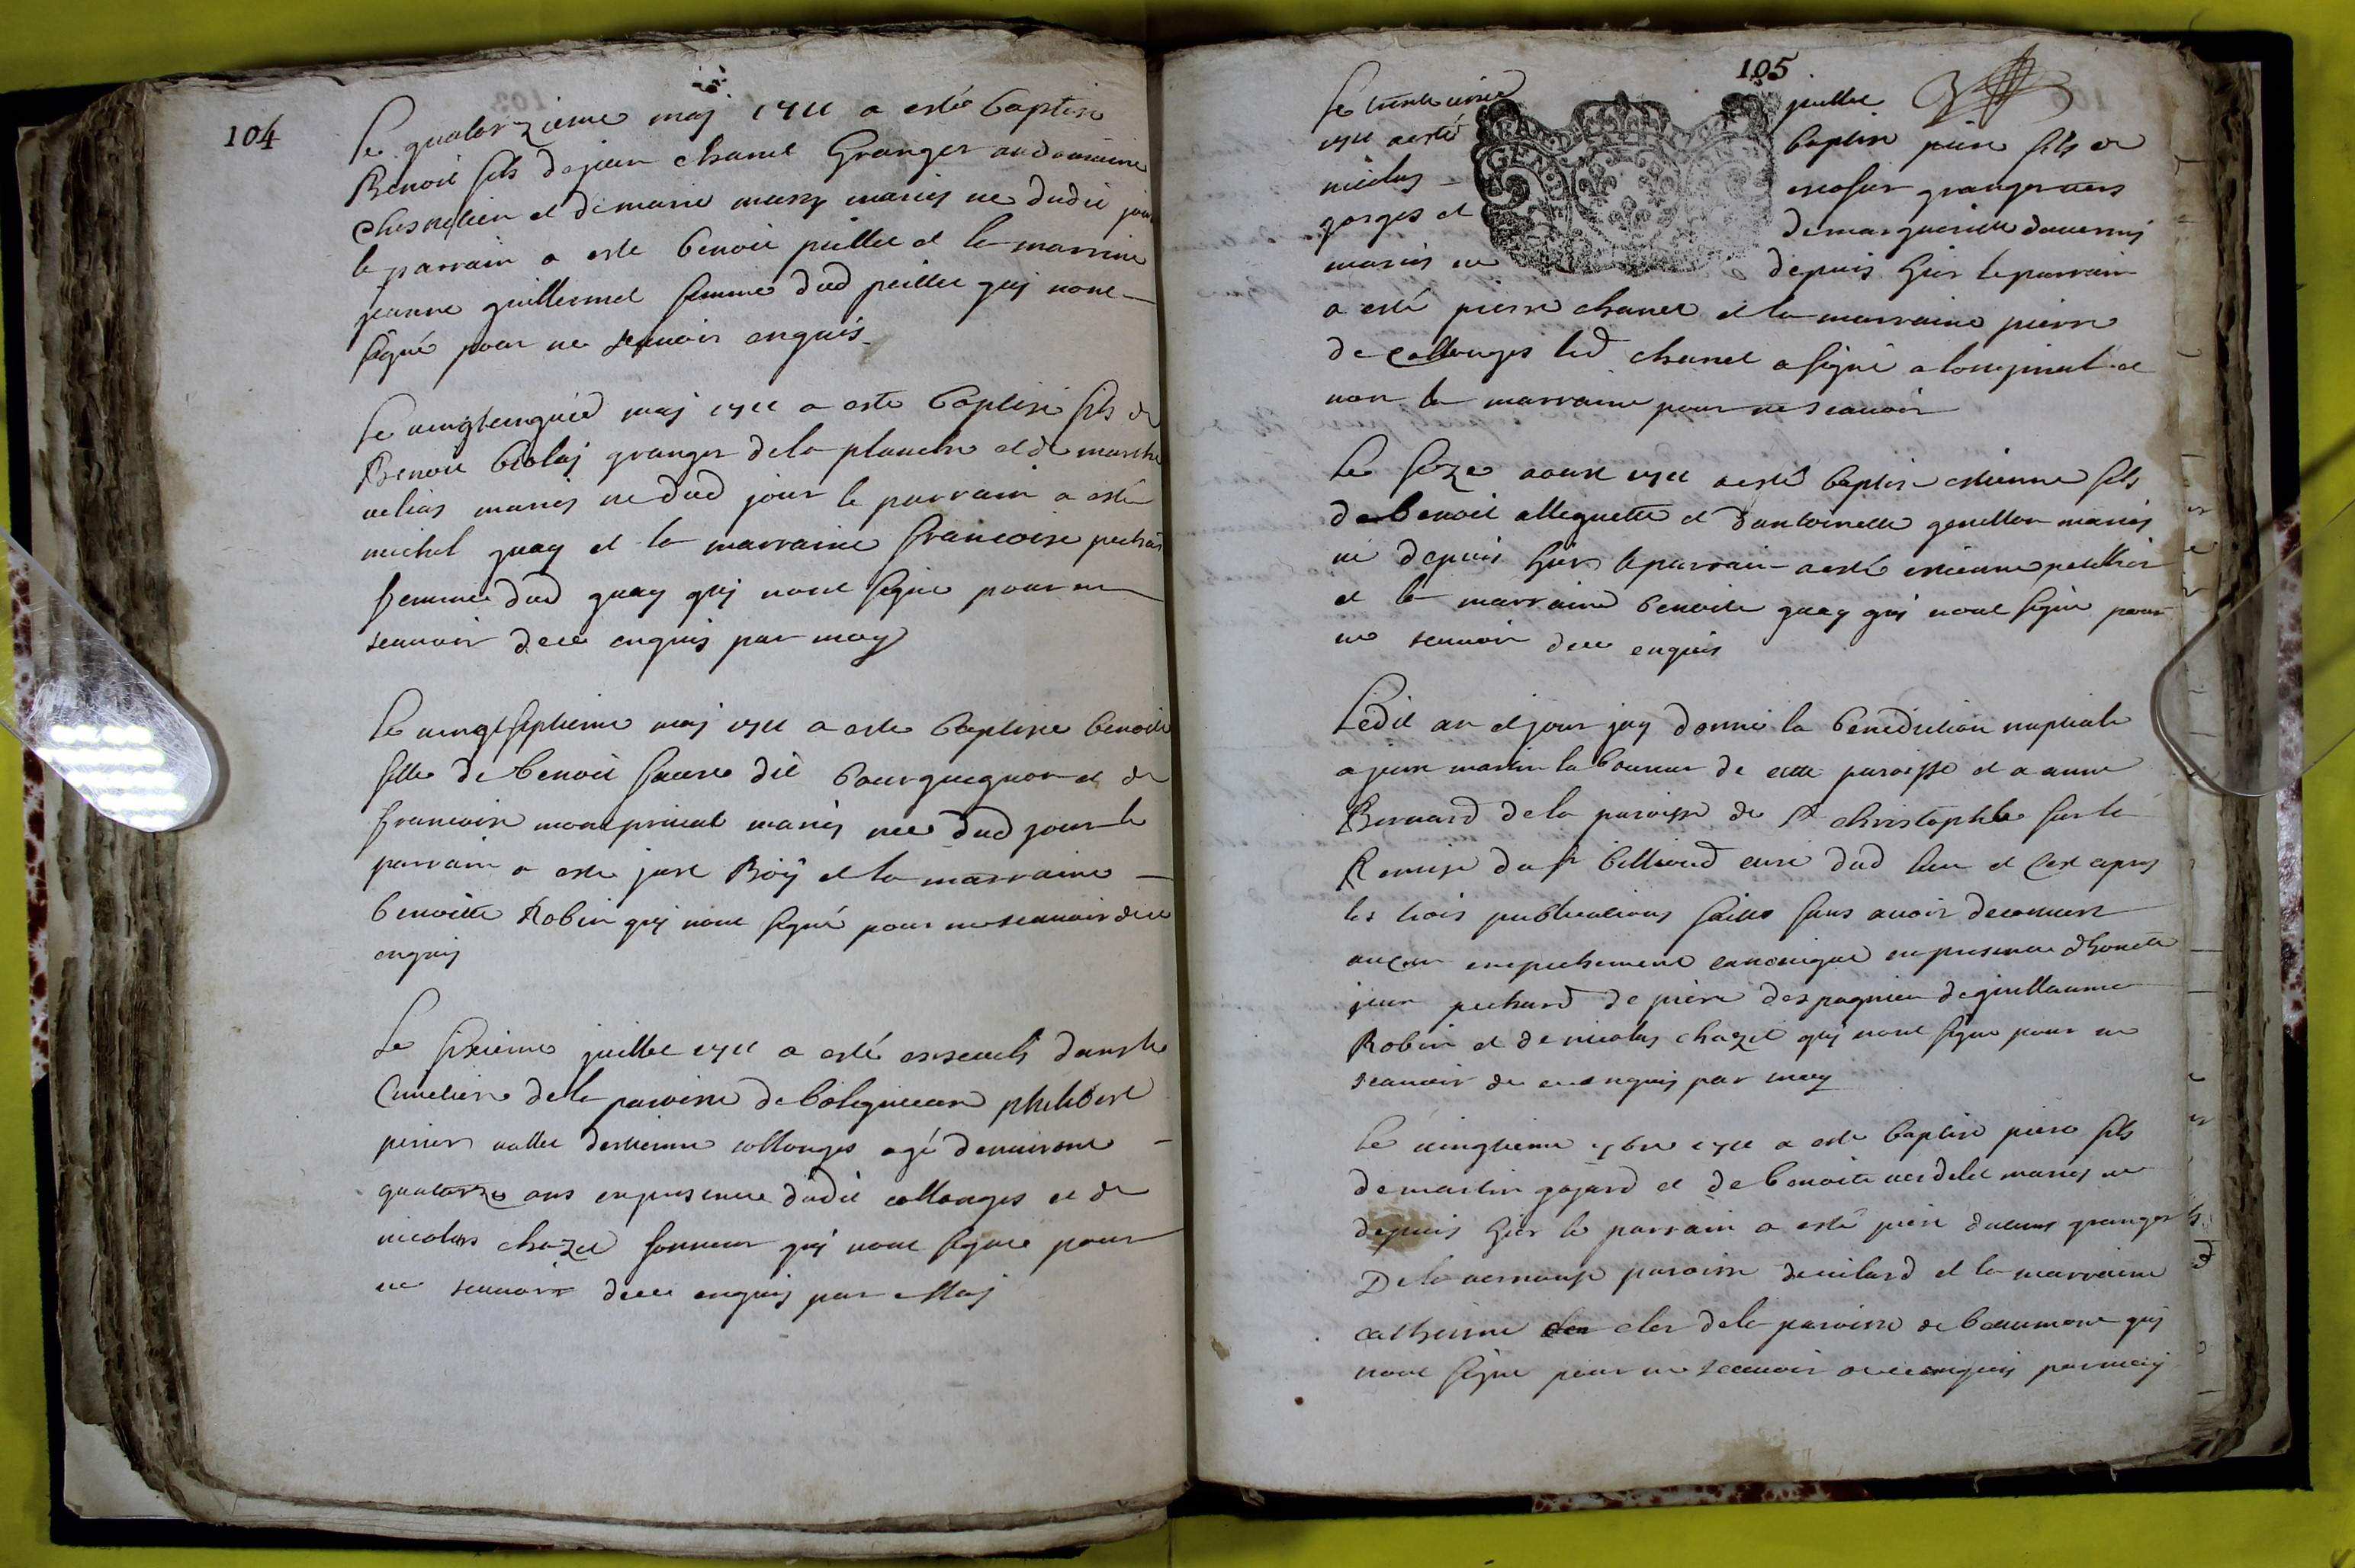 104
Le quatorzieme maj 1711 a esté baptisé
Benoit fils de jean chanel Granger au domaine
et de marie mariés ne dudit jour
le parrain a esté benoit peillet et la marrine
jeanne guillermet femme dud peillet quj nont
signé pour ne scauoir enquis
Le maj 1711 a esté baptisé fils de
Benoit granger de la planche et de
mariés ne dud jour le parrain a esté
michel guay et la marraine francoise
femme dud guay quj nont signé pour ne
scauoir de ce enquis par moy
Le vingt septieme maj 1711 a esté baptisé benoite
fille de benoit faure dit bourguignon et de
francoise mariés nee dud jour le
parrain a esté just Roÿ et la marraine
benoitte Robin quj nont signé pour ne scauoir de ce
enquis
Le sixieme juillet 1711 a esté enseveli dans le
Cimetiere de la paroisse de philibert
perier vallet destienne collonges agé denuiront
quatorze ans en presence dudit collonges et de
nicolas chazel sonneur quj nont signé pour
ne scauoir de ce enquis par Moj
105
Le juillet
1711 a esté baptisé piere fils de
nicolas granger
gorges et de marguerite
mariés ne depuis hier le parrain
a esté pierre chanel et la marraine pierre
de collonges led chanel a signé a loriginal et
non la marraine pour ne scauoir
Le seze aoust 1711 a esté baptisé estienne fils
de benoit alleguette et dantoinette genillon mariés
né depuis hier le parrain a esté estienne
et la marraine benoite guay quj nont signé pour
ne scauoir de ce enquis
Ledit an et jour jay donné la benediction nuptiale
a jean martin laboureur de cette paroisse et a anne
Bernard de la paroisse de St christophle sur la
Remise du Sr billioud curé dud lieu et Cest apres
les trois publications faites sans auoir decouuert
aucun empechement canonique en presence dhonete
jean pechard de piere despagneu de guillaume
Robin et de nicolas chazel quj nont signé pour ne
scauoir de ce enquis par moy
Le vingtieme 7bre 1711 a esté baptisé piere fils
de martin gojard et de benoite verdelet mariés ne
depuis hier le parrain a esté piere granger
De la paroisse de vilard et la marraine
catherine cler de la paroisse de beaumont quj
nont signé pour ne scauoir de ce enquis par moy